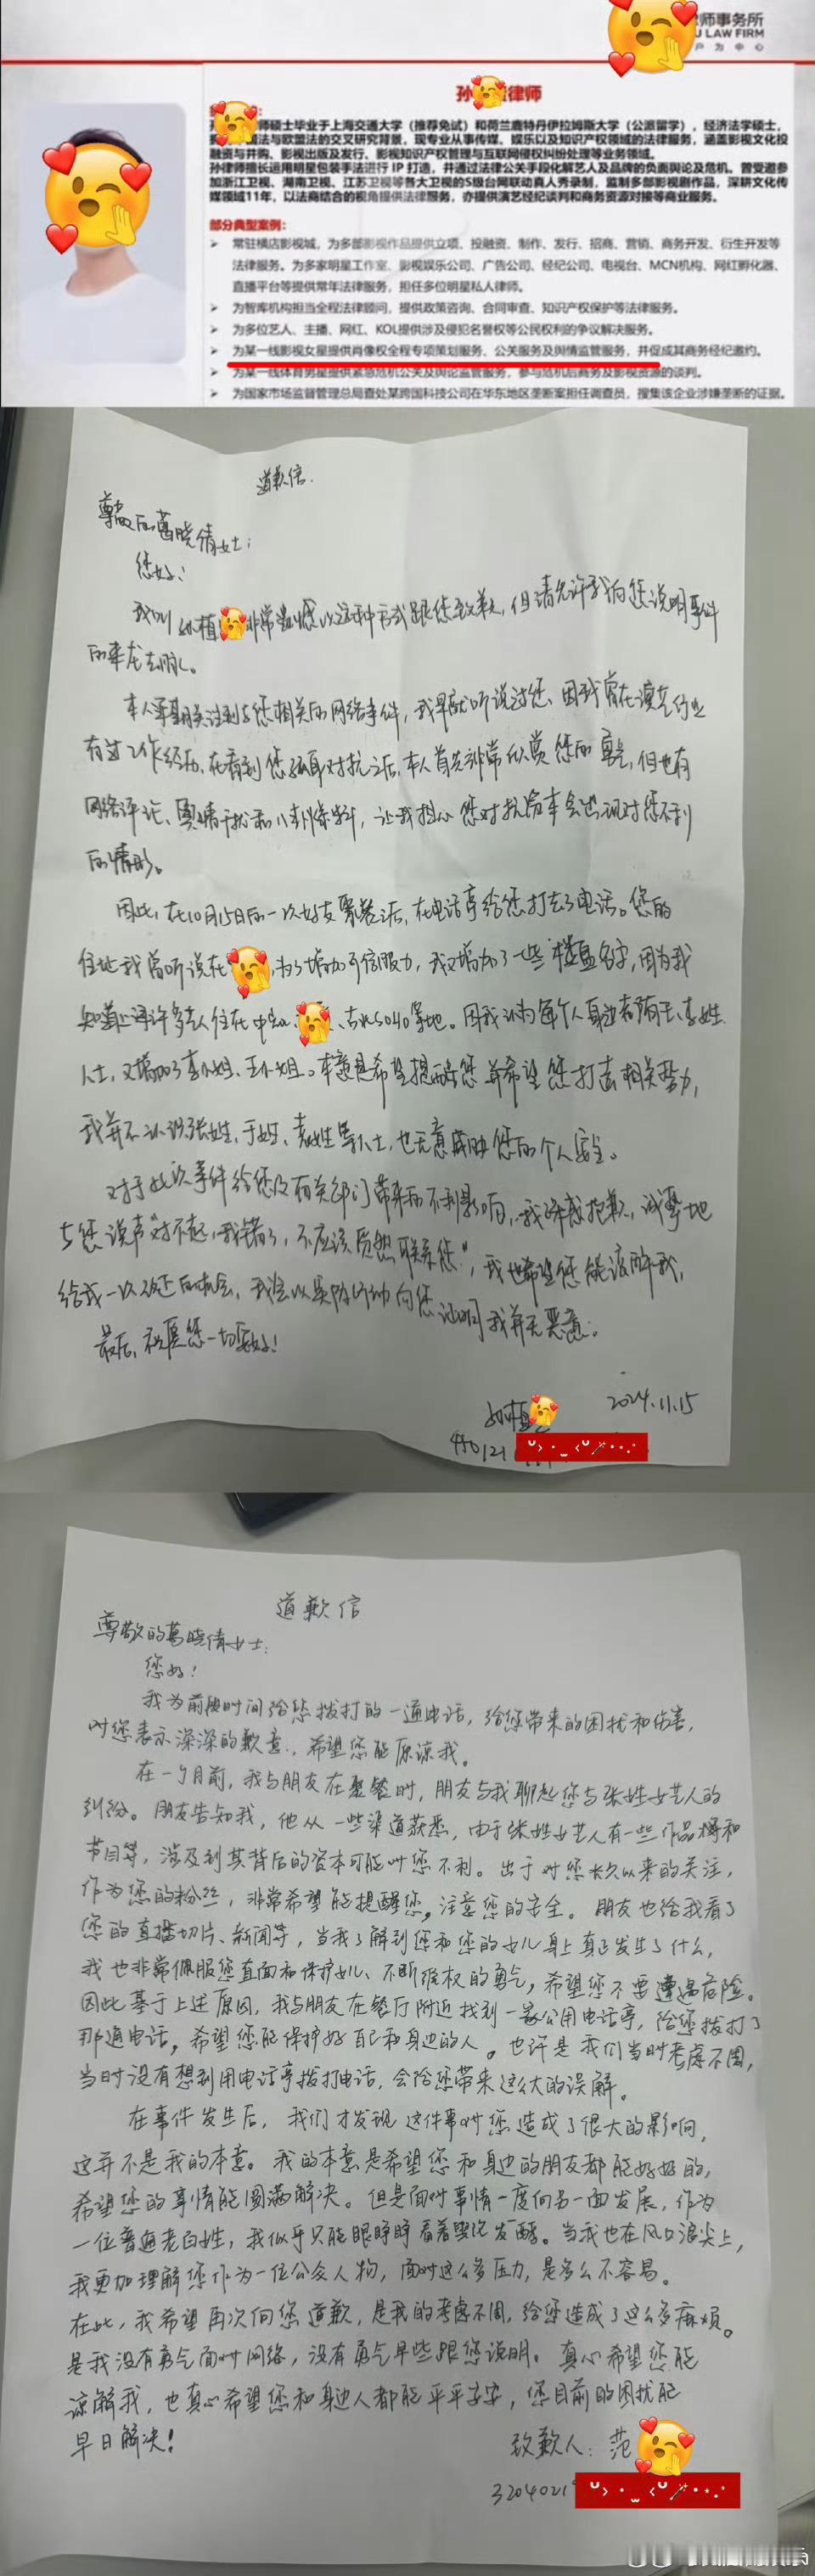 师事务所
U LAW FIRM
户 为 中 心
孙 律师
师硕士毕业于上海交通大学（推荐免试）和荷兰鹿特丹伊拉姆斯大学（公派留学），经济法学硕士，
国法与欧盟法的交叉研究背景，现专业从事传媒、娱乐以及知识产权领域的法律服务，涵盖影视文化投
融资与并购、影视出版及发行、影视知识产权管理与互联网侵权纠纷处理等业务领域。
孙律师擅长运用明星包装手法进行 IP 打造，并通过法律公关手段化解艺人及品牌的负面舆论及危机。曾受邀参
加浙江卫视、湖南卫视、江苏卫视等各大卫视的S级台网联动真人秀录制，监制多部影视剧作品，深耕文化传
媒领域11年，以法商结合的视角提供法律服务，亦提供演艺经纪谈判和商务资源对接等商业服务。
部分典型案例：
➢ 常驻横店影视城，为多部影视作品提供立项、投融资、制作、发行、招商、营销、商务开发、衍生开发等
法律服务。为多家明星工作室、影视娱乐公司、广告公司、经纪公司、电视台、MCN机构、网红孵化器、
直播平台等提供常年法律服务，担任多位明星私人律师。
➢ 为智库机构担当全程法律顾问，提供政策咨询、合同审查、知识产权保护等法律服务。
➢ 为多位艺人、主播、网红、KOL提供涉及侵犯名誉权等公民权利的争议解决服务。
➢ 为某一线影视女星提供肖像权全程专项策划服务、公关服务及舆情监管服务，并促成其商务经纪邀约。
➢ 为某一线体育男星提供紧急危机公关及舆论监管服务，参与危机后商务及影视资源的谈判。
➢ 为国家市场监督管理总局查处某跨国科技公司在华东地区垄断案担任调查员，搜集该企业涉嫌垄断的证据。
道歉信.
尊敬的葛晓倩女士：
您好！
我叫孙植 非常遗憾以这种方式跟您致歉，但请允许我向您说明事件
的来龙去脉。
本人早期关注到与您相关的网络事件，我早就听说过您、因我曾在演艺行业
有过工作经历，在看到您孤身对抗之后，本人首先非常欣赏您的勇气，但也有
网络评论、舆情干扰和八卦爆料，让我担心您对抗资本会出现对您不利
的情形。
因此，在10月15日的一次好友聚餐之后，在电话亭给您打去了电话。您的
住址我曾听说在 ，为了增加可信服力，我又增加了一些楼盘名字，因为我
知道上海许多艺人住在中 、古北SOHO等地。因我认为每个人身边都有王、李姓
人士，又增加了李小姐、王小姐。本意是希望提醒您并希望您打击相关势力，
我并不认识张姓、于姓、袁姓等人士，也无意威胁您的个人安全。
对于此次事件给您及有关部门带来的不利影响，我深感抱歉，诚挚地
与您说声“对不起，我错了，不应该贸然联系您”，我也希望您能谅解我，
给我一次改过的机会，我会以实际行动向您证明我并无恶意。
最后，祝愿您一切安好！
孙植 2024.11.15
440121
道歉信
尊敬的葛晓倩女士：
您好！
我为前段时间给您拨打的一通电话，给您带来的困扰和伤害，
对您表示深深的歉意，希望您能原谅我。
在一个月前，我与朋友在聚餐时，朋友与我聊起您与张姓女艺人的
纠纷。朋友告知我，他从一些渠道获悉，由于张姓女艺人有一些作品播和
节目等，涉及到其背后的资本可能对您不利。出于对您长久以来的关注，
作为您的粉丝，非常希望能提醒您，注意您的安全。朋友也给我看了
您的直播切片、新闻等，当我了解到您和您的女儿身上真正发生了什么，
我也非常佩服您直面和保护女儿、不断维权的勇气，希望您不要遭遇危险。
因此基于上述原因，我与朋友在餐厅附近找到一家公用电话亭，给您拨打了
那通电话，希望您能保护好自己和身边的人。也许是我们当时考虑不周，
当时没有想到用电话亭拨打电话，会给您带来这么大的误解。
在事件发生后，我们才发现这件事对您造成了很大的影响，
这并不是我的本意。我的本意是希望您和身边的朋友都能好好的，
希望您的事情能圆满解决。但是面对事情一度向另一面发展，作为
一位普通老百姓，我似乎只能眼睁睁看着舆论发酵。当我也在风口浪尖上，
我更加理解您作为一位公众人物，面对这么多压力，是多么不容易。
在此，我希望再次向您道歉，是我的考虑不周，给您造成了这么多麻烦。
是我没有勇气面对网络，没有勇气早些跟您说明。真心希望您能
谅解我，也真心希望您和身边人都能平平安安，您目前的困扰能
早日解决！
致歉人：范
3204021